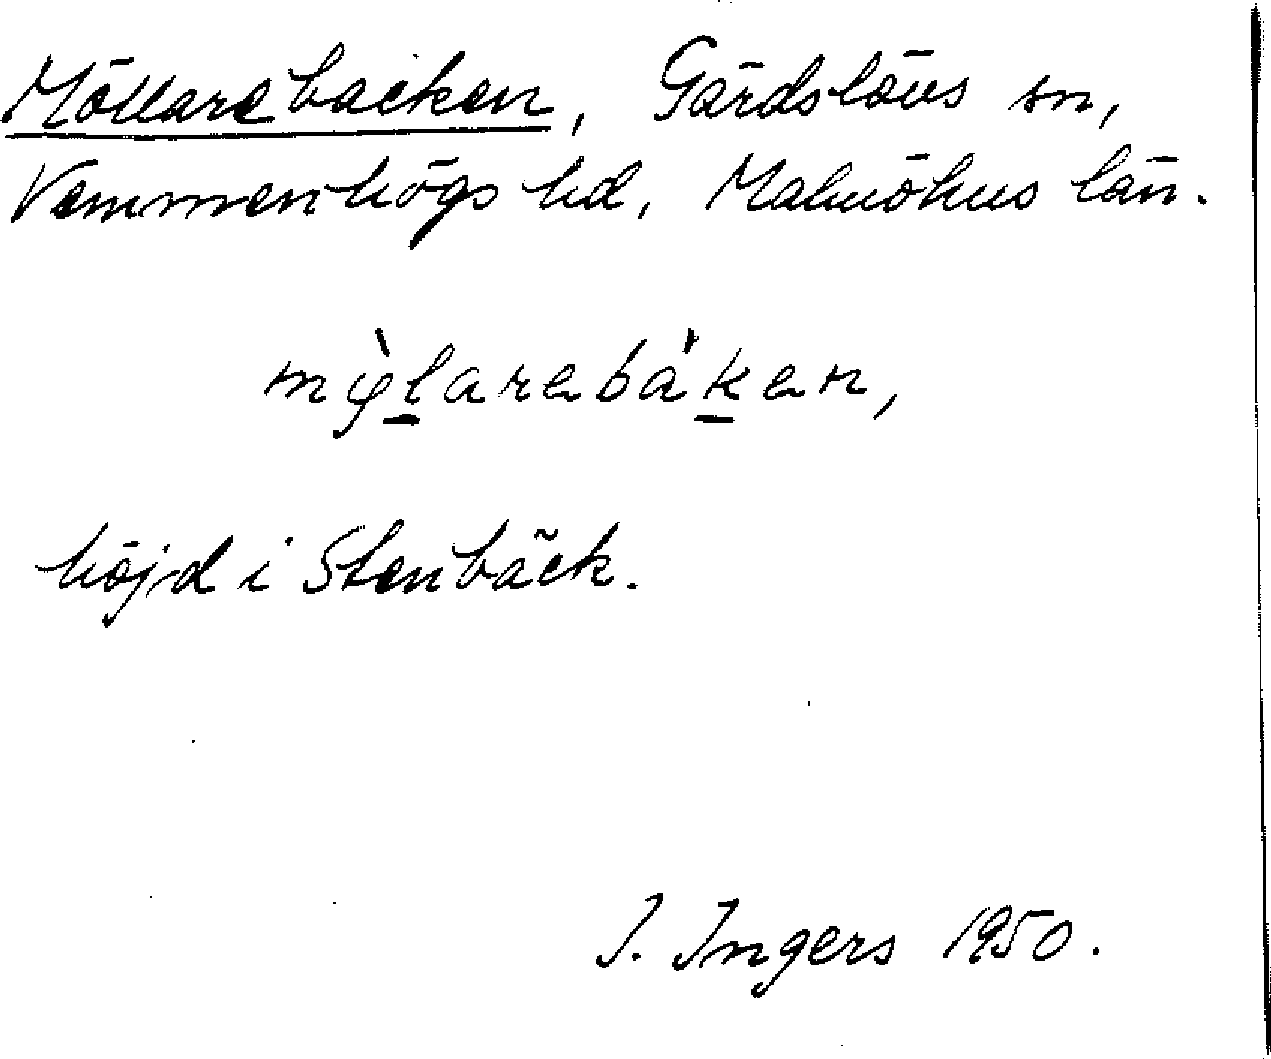 Möllarebacken, Gärdslövs sn,
Vemmenhögs hd, Malmöhus län.
mø̀l̲arebák̲en,
höjd i Stenbäck.
I. Ingers 1950.